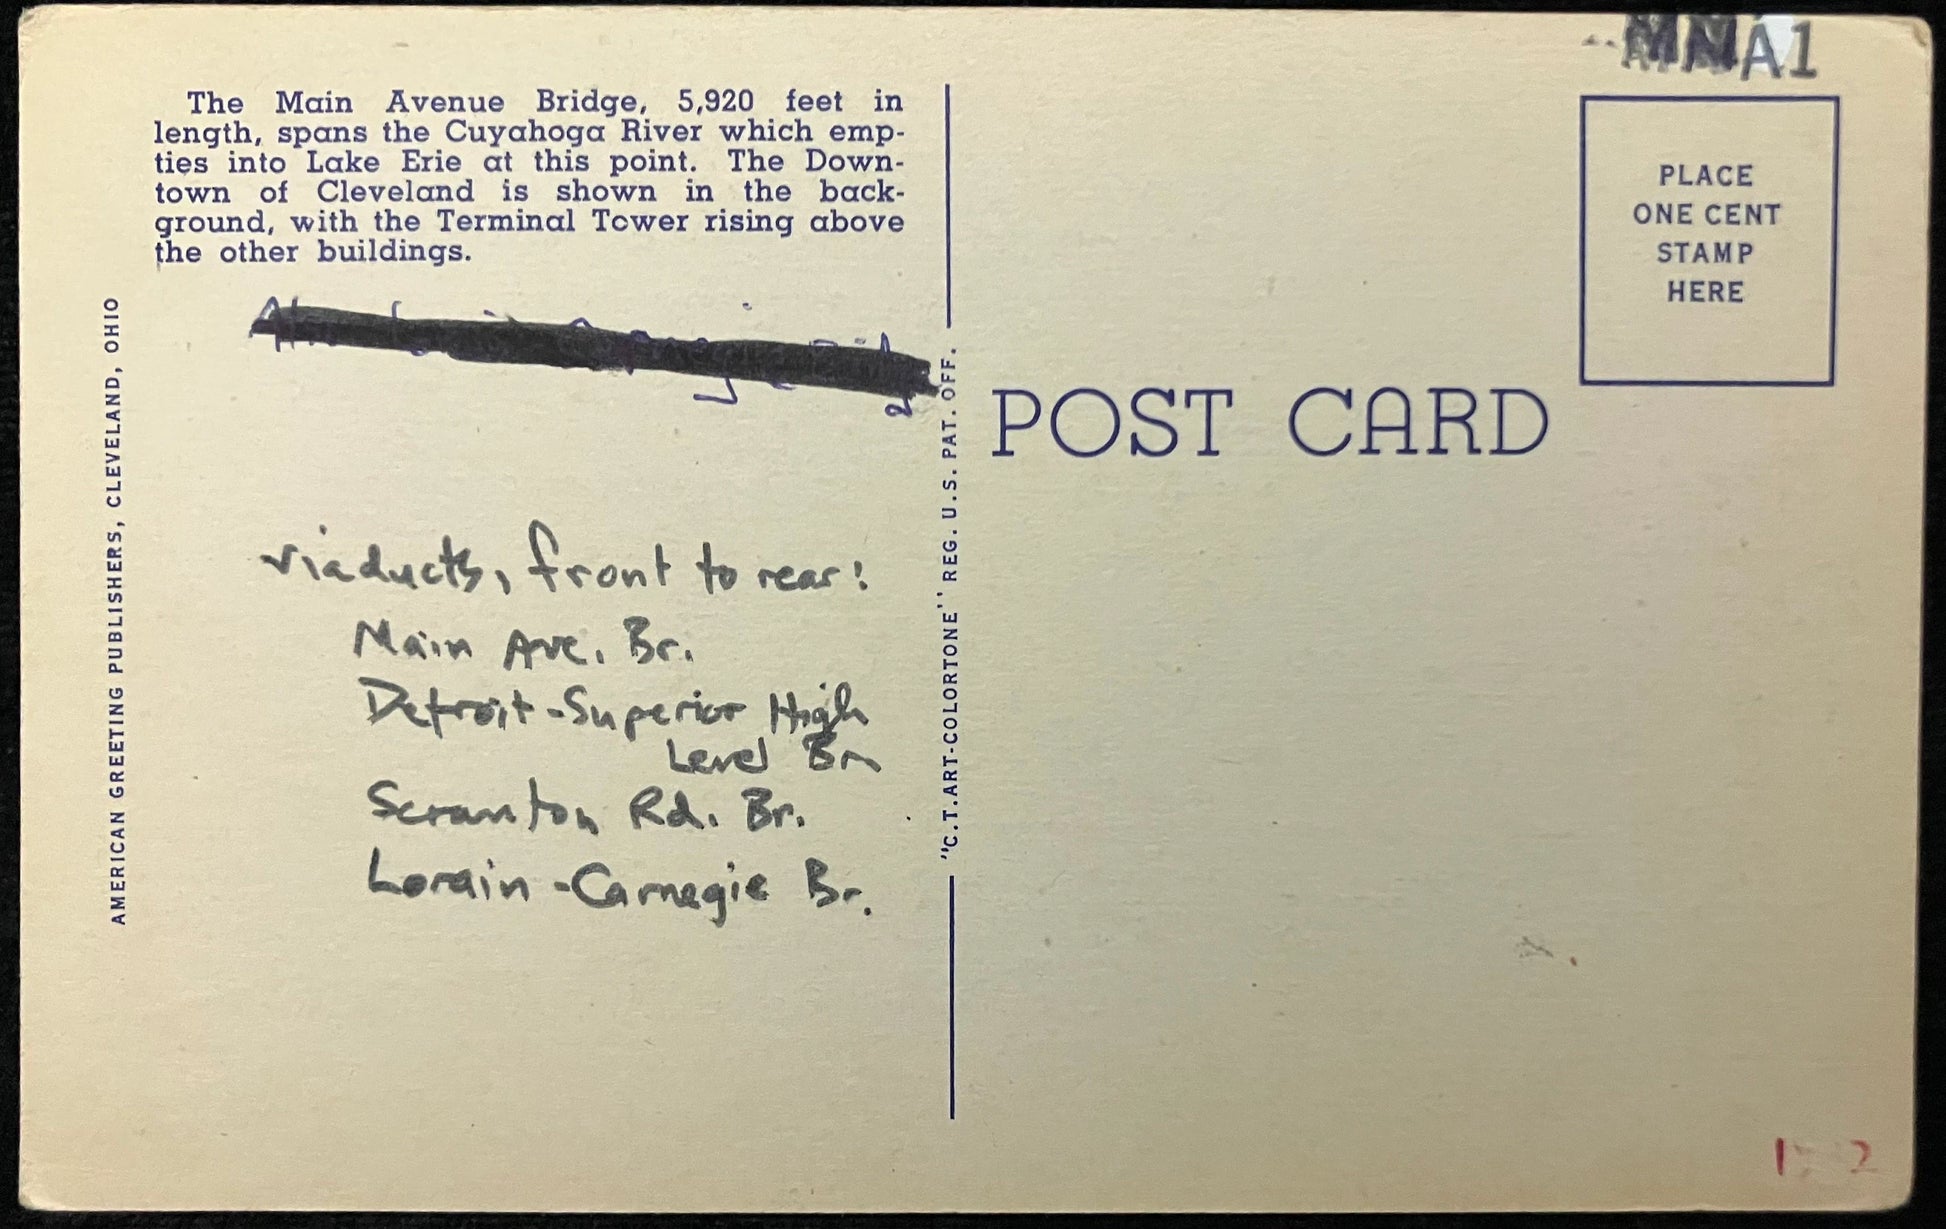 The Main Avenue Bridge, 5,920 feet in
length, spans the Cuyahoga River which emp-
ties into Lake Erie at this point. The Down-
town of Cleveland is shown in the back-
ground, with the Terminal Tower rising above
the other buildings.
AMERICAN GREETING PUBLISHERS, CLEVELAND, OHIO
viaducts, front to rear:
Main Ave. Br.
Detroit-Superior High
Level Br.
Scranton Rd. Br.
Lorain-Carnegie Br.
"C.T. ART-COLORTONE" REG. U.S. PAT. OFF.
POST CARD
A1
PLACE
ONE CENT
STAMP
HERE